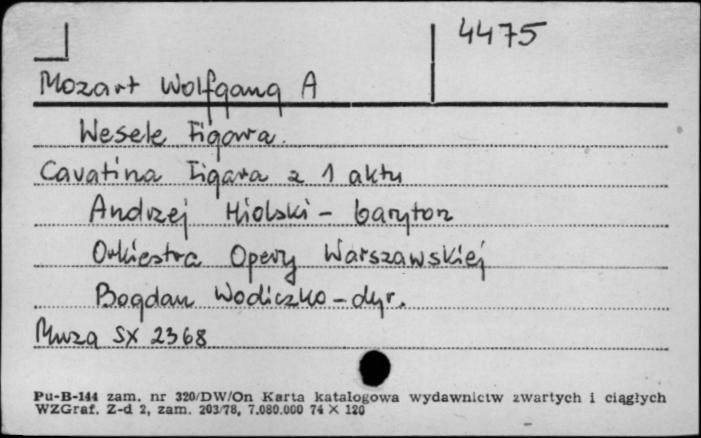 4475
Mozart Wolfgang A
Wesele Figara.
Cavatina Figara z 1 aktu
Andrzej Hiolski - baryton
Orkiestra Opery Warszawskiej
Bogdan Wodiczko - dyr.
Muza SX 2368
Pu-B-144 zam. nr 320/DW/On Karta katalogowa wydawnictw zwartych i ciągłych
WZGraf. Z-d 2, zam. 203/78, 7.080.000 74 × 120